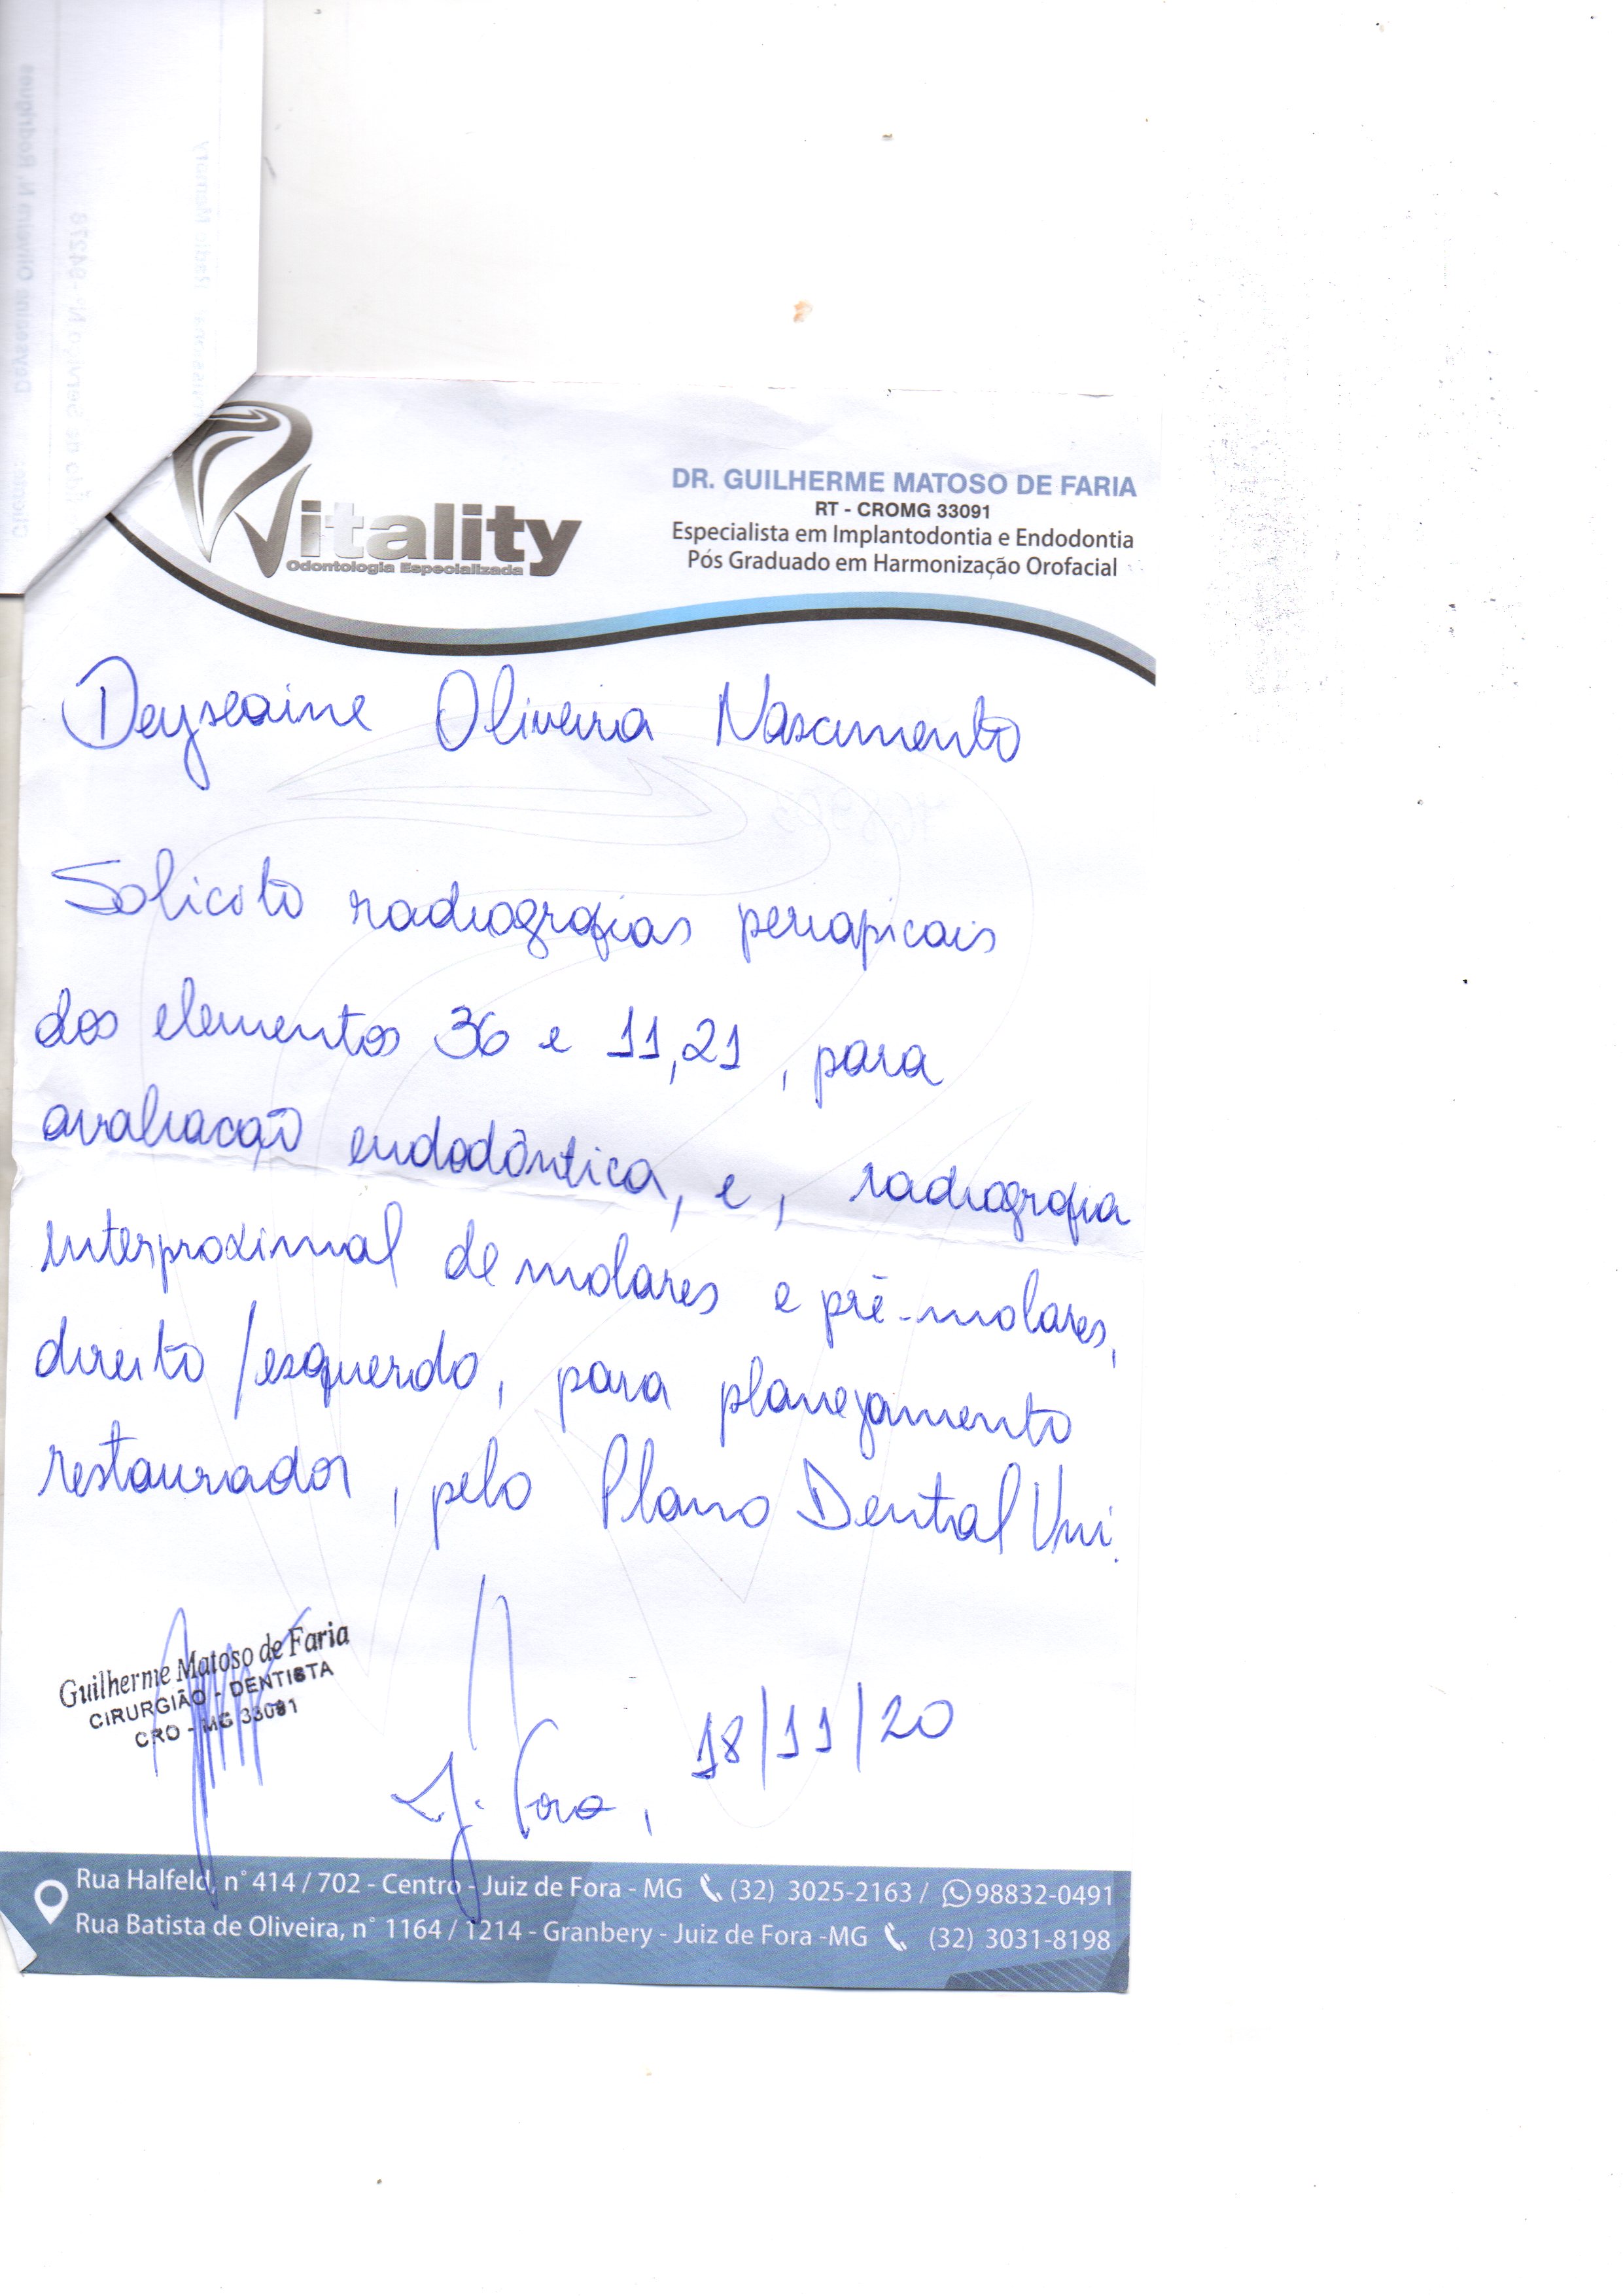 Vitality
Odontologia Especializada
DR. GUILHERME MATOSO DE FARIA
RT - CROMG 33091
Especialista em Implantodontia e Endodontia
Pós Graduado em Harmonização Orofacial
Deyseaine Oliveira Nascimento
Solicito radiografias periapicais
dos elementos 36 e 11,21, para
avaliação endodôntica, e, radiografia
interproximal de molares e pré-molares,
direito/esquerdo, para planejamento
restaurador, pelo Plano Dental Uni.
Guilherme Matoso de Faria
CIRURGIÃO - DENTISTA
CRO - MG 33091
J. Fora, 18/11/20
Rua Halfeld, n° 414 / 702 - Centro - Juiz de Fora - MG (32) 3025-2163 / 98832-0491
Rua Batista de Oliveira, n° 1164 / 1214 - Granbery - Juiz de Fora -MG (32) 3031-8198